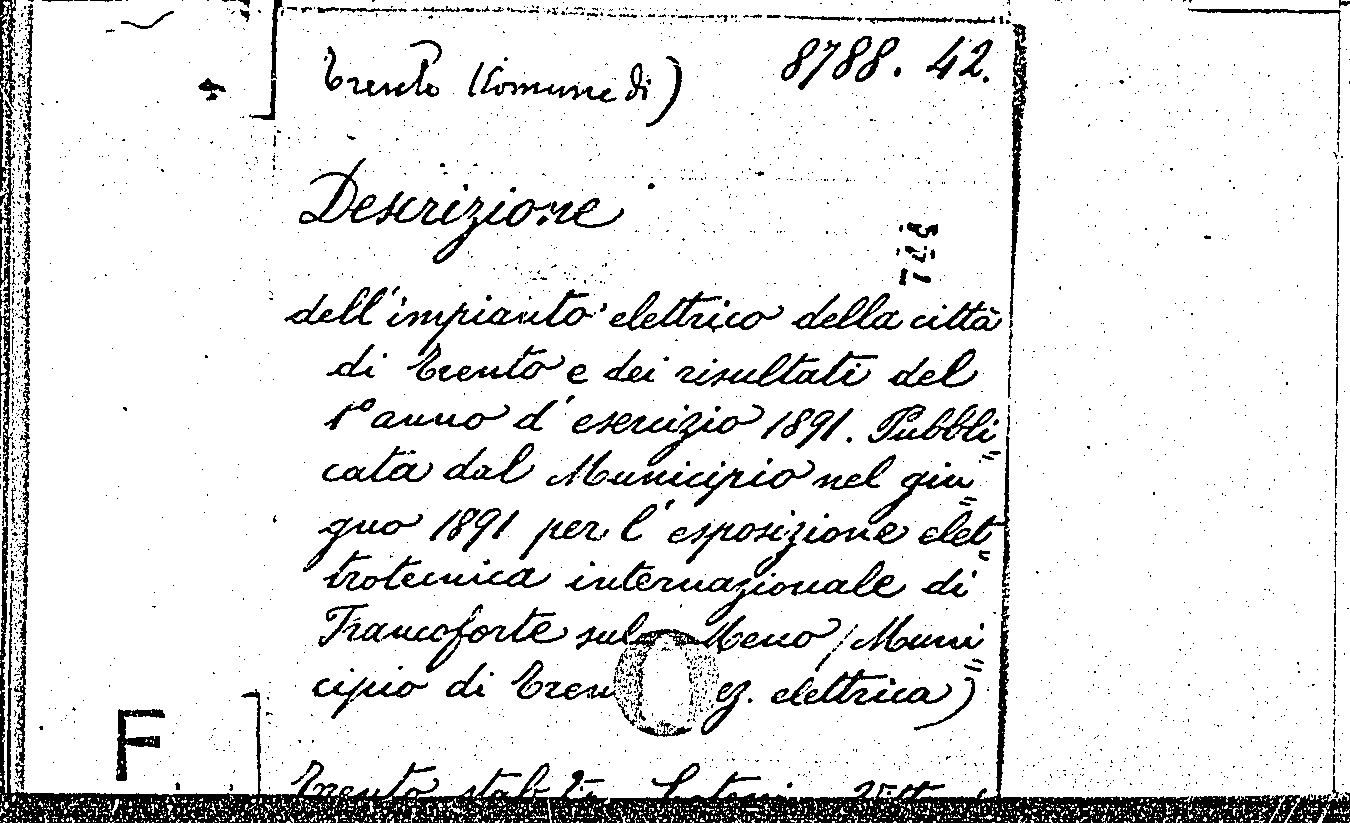 Trento (Comune di)
8788. 42.
Descrizione
dell'impianto elettrico della città
di Trento e dei risultati del
1° anno d'esercizio 1891. Pubbli
cata dal Municipio nel giu
gno 1891 per l'esposizione elet
trotecnica internazionale di
Francoforte sul Meno (Muni
cipio di elettrica)
Trento
F